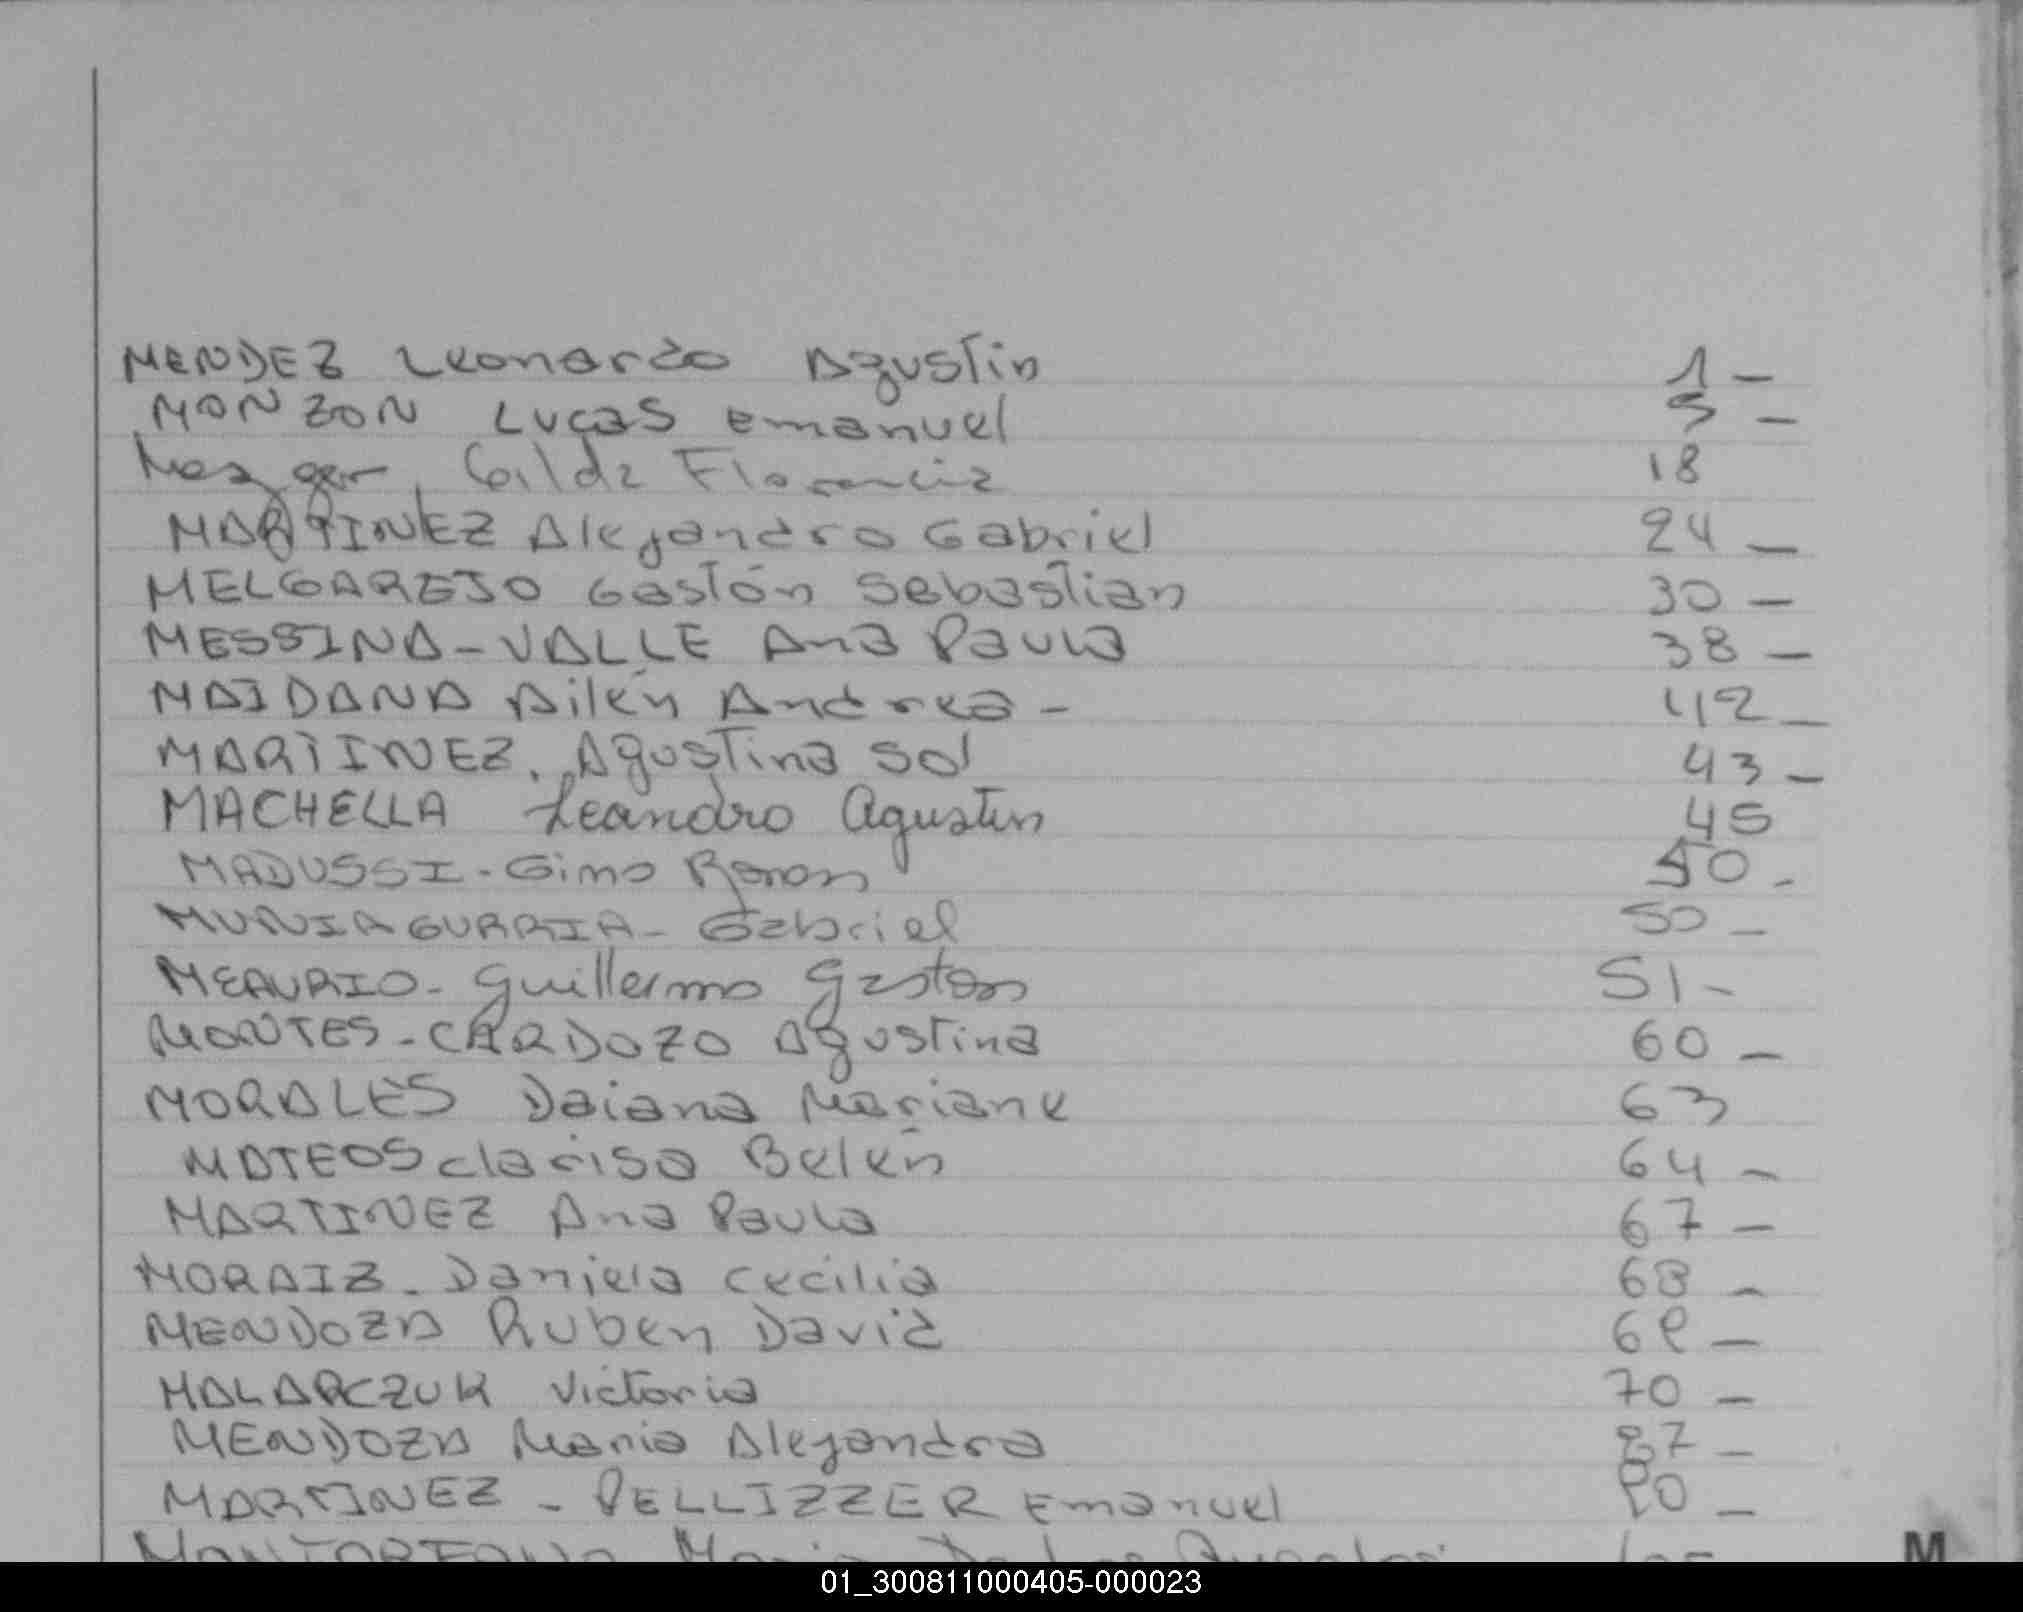 MENDEZ Leonardo Agustin 1 -
MONZON Lucas Emanuel 5 -
Mezger, Gilda Florencia 18
MARTINEZ Alejandro Gabriel 24 -
MELGAREJO Gastón Sebastian 30 -
MESSINA-VALLE Ana Paula 38 -
MAIDANA Ailén Andrea - 42 -
MARTINEZ. Agustina Sol 43 -
MACHELLA Leandro Agustin 45
MADUSSI - Gino 50 -
MUNIAGURRIA - Gabriel 50 -
MEAURIO - Guillermo Gaston 51 -
MONTES - CARDOZO Agustina 60 -
MORALES Daiana Mariane 63
MATEOS clarisa Belén 64 -
MARTINEZ Ana Paula 67 -
MORAIZ. Daniela Cecilia 68 -
MENDOZA Ruben David 69 -
MALARCZUK Victoria 70 -
MENDOZA Maria Alejandra 87 -
MARTINEZ - PELLIZZER Emanuel 90 -
M
01_300811000405-000023